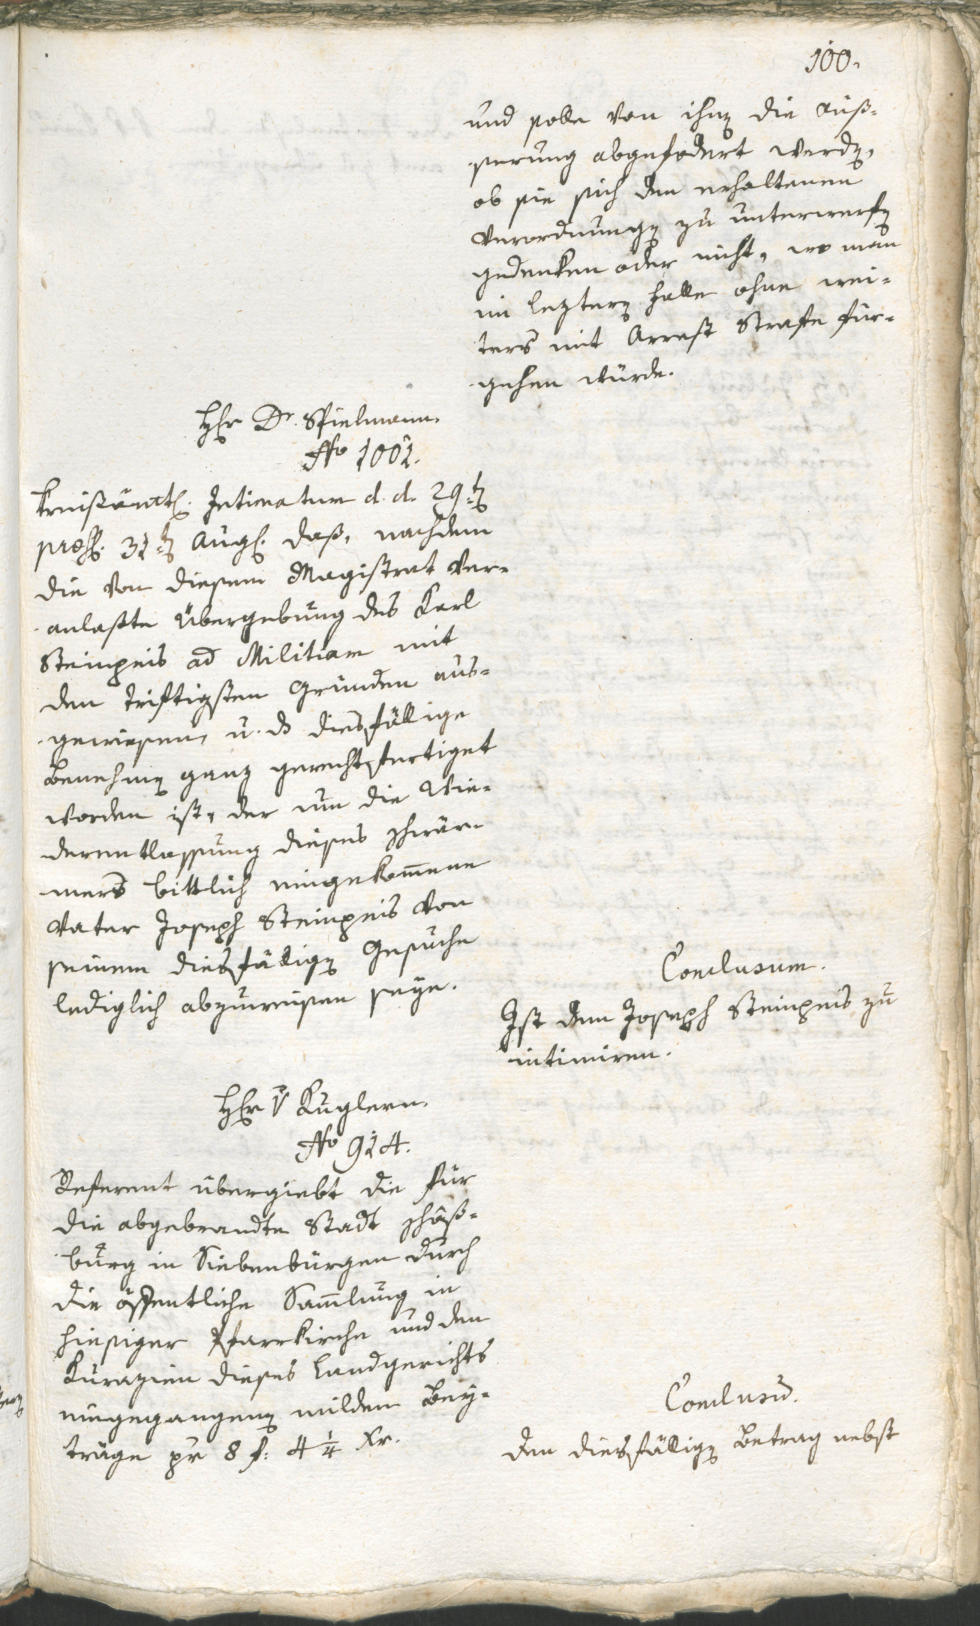 100.
und solle von ihnen die Äuß-
serung abgefodert werden,
ob sie sich den erhaltenen
Verordnungen zu unterwerfen
gedenken oder nicht, wo man
im leztern Falle ohne wei-
ters mit Arrest Strafe für-
gehen würde.
Hr. Dr. Spielmann.
No 1001.
Kreißämtl. Intimatum d. d. 29ten
præs. 31ten Aug. daß, nachdem
die von diesem Magistrat ver-
anlaßte Übergebung des Karl
Steinpeis ad Militiam mit
den triftigsten Gründen aus-
gewiesen, u. ds diesfällige
Benehmen ganz gerechtfertiget
worden ist, der um die Wie-
derentlassung dieses Schwär-
mers bittlich eingekommene
Vater Joseph Steinpeis von
seinem diesfälligen Gesuche
lediglich abzuweisen seye.
Conclusum.
Ist dem Joseph Steinpeis zu
intimiren.
Hr. v Kuglern.
No 914.
Referent übergiebt die für
die abgebrandte Stadt Schäß-
burg in Siebenbürgen durch
die öffentliche Sammlung in
hiesiger Pfarrkirche und den
Kurazien dieses Landgerichts
eingegangenen milden Bey-
träge pr 8 f: 4 1/4 Xr.
Conclusum.
Den diesfälligen Betrag nebst